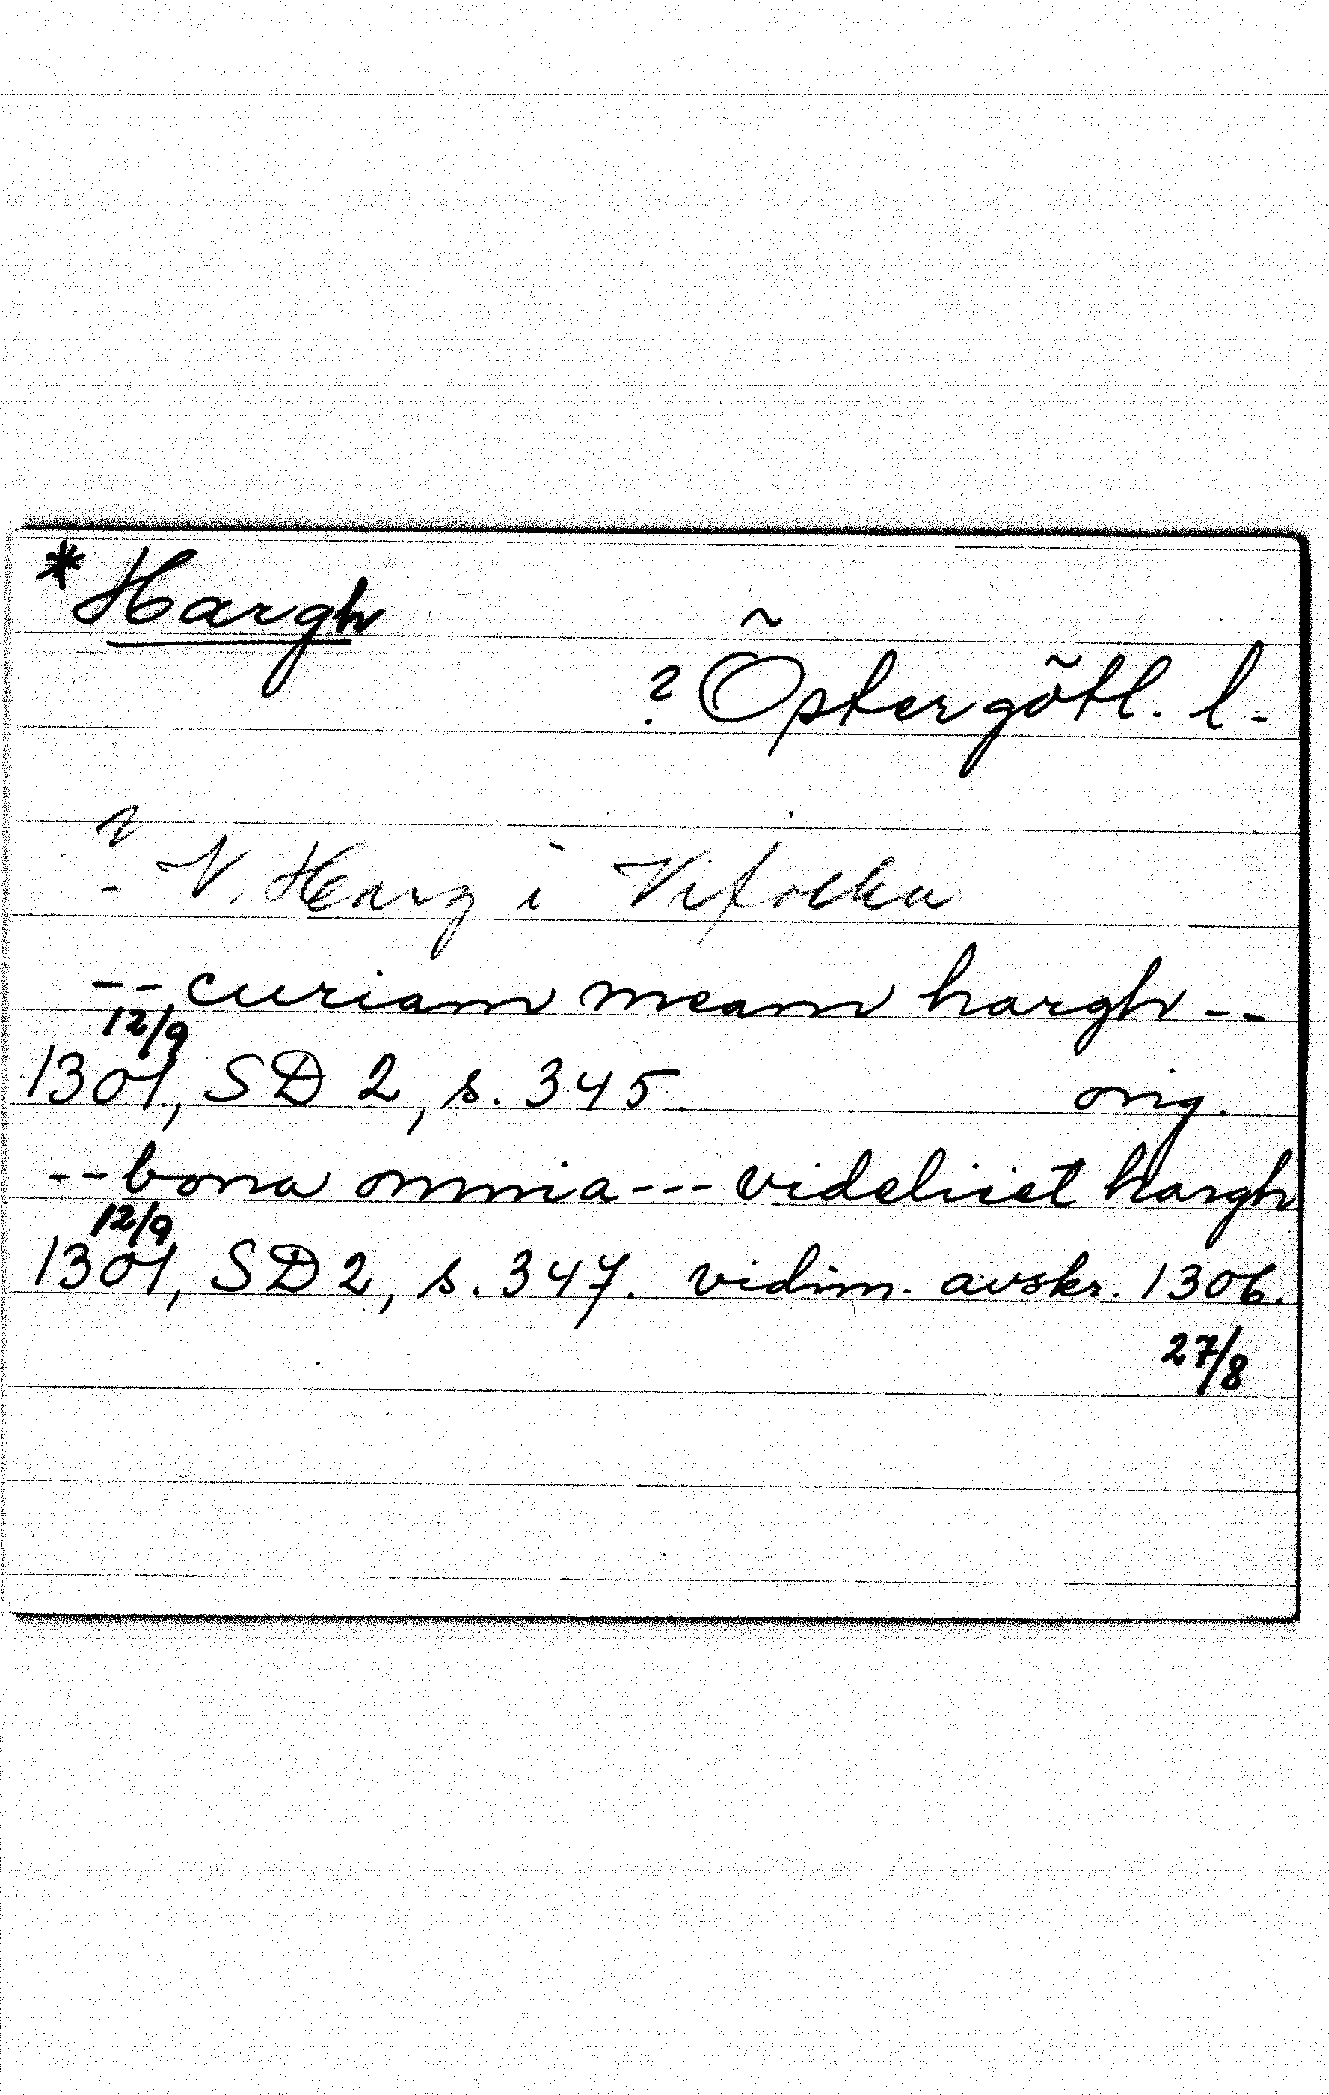 *Hargh
? Östergötl. l.
? N. Harg i Vifolka
-- curiam meam hargh --
12/9
1301, SD 2, s. 345. orig.
-- bona omnia --- videlicet hargh
12/9
1301, SD 2, s. 347. vidim. avskr. 1306.
27/8